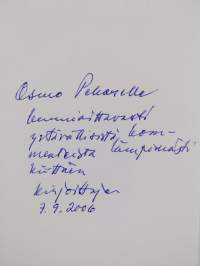 Osmo Pekoselle
kunnioittavasti
ystävällisistä kom-
menteista lämpimästi
kiittäen
kirjoittaja
7.9.2006